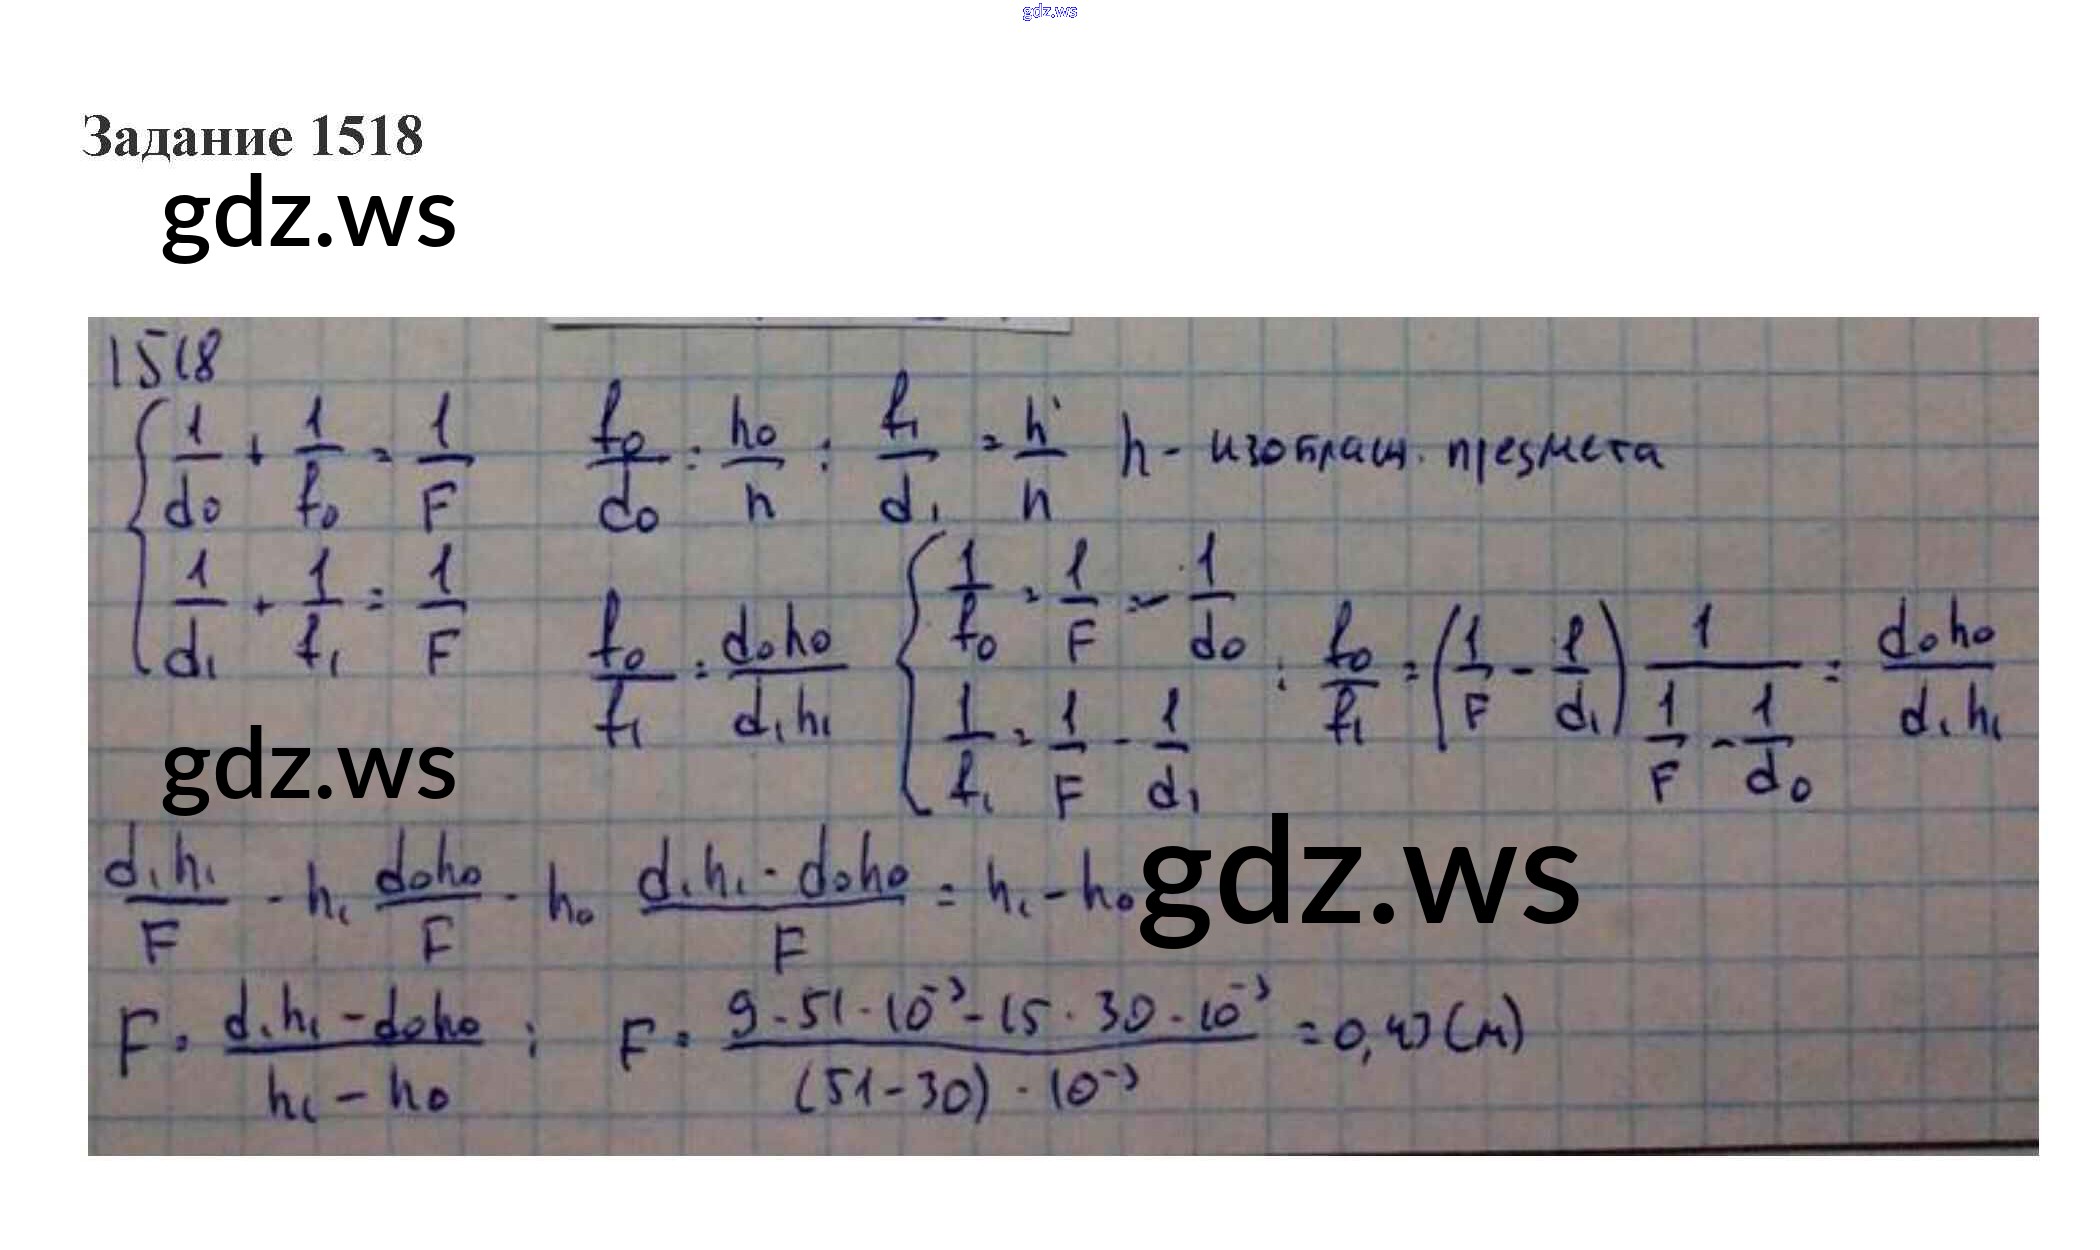 gdz.ws
Задание 1518
gdz.ws
1518
{ 1/d0 + 1/f0 = 1/F   f0/d0 = h0/h ; f1/d1 = h'/h   h - изображ. предмета
1/d1 + 1/f1 = 1/F   f0/f1 = d0h0/d1h1   { 1/f0 = 1/F - 1/d0   1/f1 = 1/F - 1/d1 ; f0/f1 = (1/F - 1/d1) 1/(1/F - 1/d0) = d0h0/d1h1
gdz.ws
d1h1/F - h1   d0h0/F - h0   (d1h1 - d0h0)/F = h1 - h0
gdz.ws
F = (d1h1 - d0h0)/(h1 - h0) ; F = (9·51·10⁻³ - 15·30·10⁻³)/((51-30)·10⁻³) = 0,43 (м)